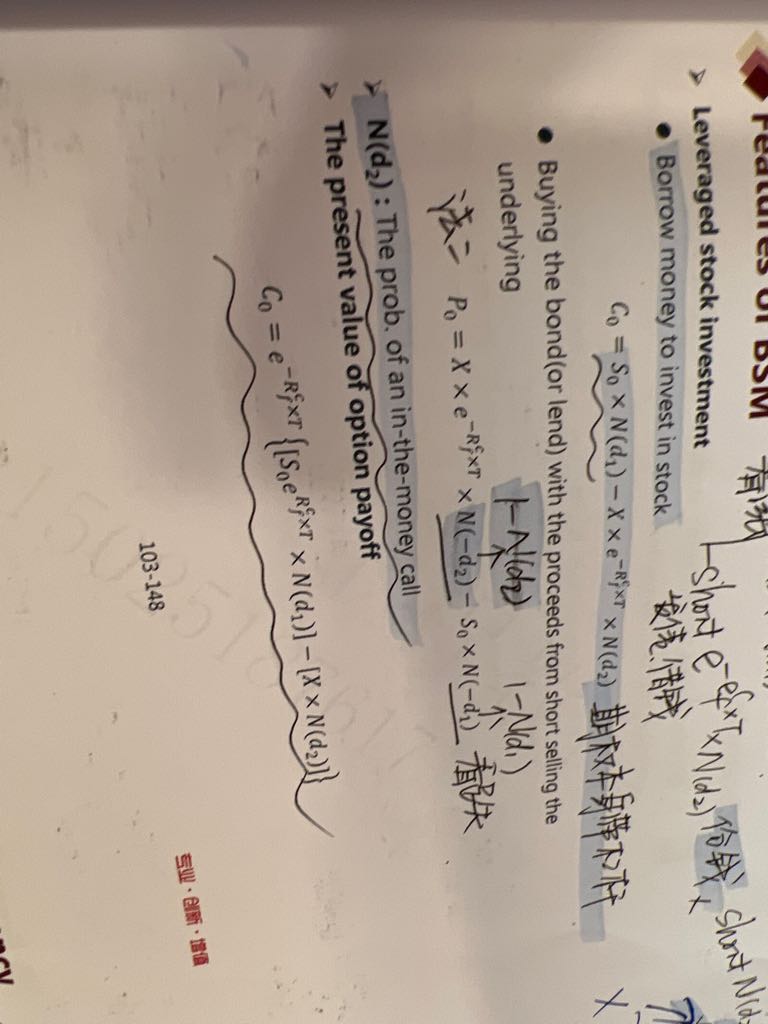 Features of BSM
➢ Leveraged stock investment
● Borrow money to invest in stock
short
× N(d₂)
借钱
C₀ = S₀ × N(d₁) − X × e^{−R_f^c×T} × N(d₂) 期权本身带杠杆
● Buying the bond(or lend) with the proceeds from short selling the
underlying
1−N(d₂) 1−N(d₁)
P₀ = X × e^{−R_f^c×T} × N(−d₂) − S₀ × N(−d₁)
➢ N(d₂) : The prob. of an in-the-money call
➢ The present value of option payoff
C₀ = e^{−R_f^c×T} {[S₀e^{R_f^c×T} × N(d₁)] − [X × N(d₂)]}
103-148
专业 · 创新 · 增值